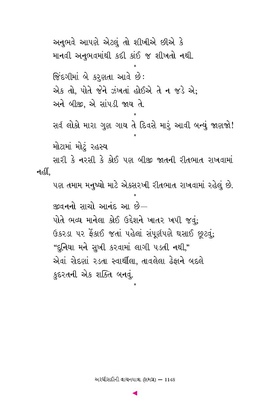 અનુભવે આપણે એટલું તો શીખીએ છીએ કે
માનવી અનુભવમાંથી કદી કાંઈ જ શીખતો નથી.
*
જિંદગીમાં બે કરુણતા આવે છે:
એક તો, પોતે જેને ઝંખતાં હોઈએ તે ન જડે એ;
અને બીજી, એ સાંપડી જાય તે.
*
સર્વ લોકો મારા ગુણ ગાય તે દિવસે મારું આવી બન્યું જાણજો!
*
મોટામાં મોટું રહસ્ય
સારી કે નરસી કે કોઈ પણ બીજી જાતની રીતભાત રાખવામાં
નહીં,
પણ તમામ મનુષ્યો માટે એકસરખી રીતભાત રાખવામાં રહેલું છે.
*
જીવનનો સાચો આનંદ આ છે—
પોતે ભવ્ય માનેલા કોઈ ઉદ્દેશને ખાતર ખપી જવું;
ઉકરડા પર ફેંકાઈ જતાં પહેલાં સંપૂર્ણપણે ઘસાઈ છૂટવું;
“દુનિયા મને સુખી કરવામાં લાગી પડતી નથી,”
એવાં રોદણાં રડતા સ્વાર્થીલા, તાવલેલા ઢેફાને બદલે
કુદરતની એક શક્તિ બનવું.
*
અરધીસદીની વાચનયાત્રા (ભાગ:૧) — 1140